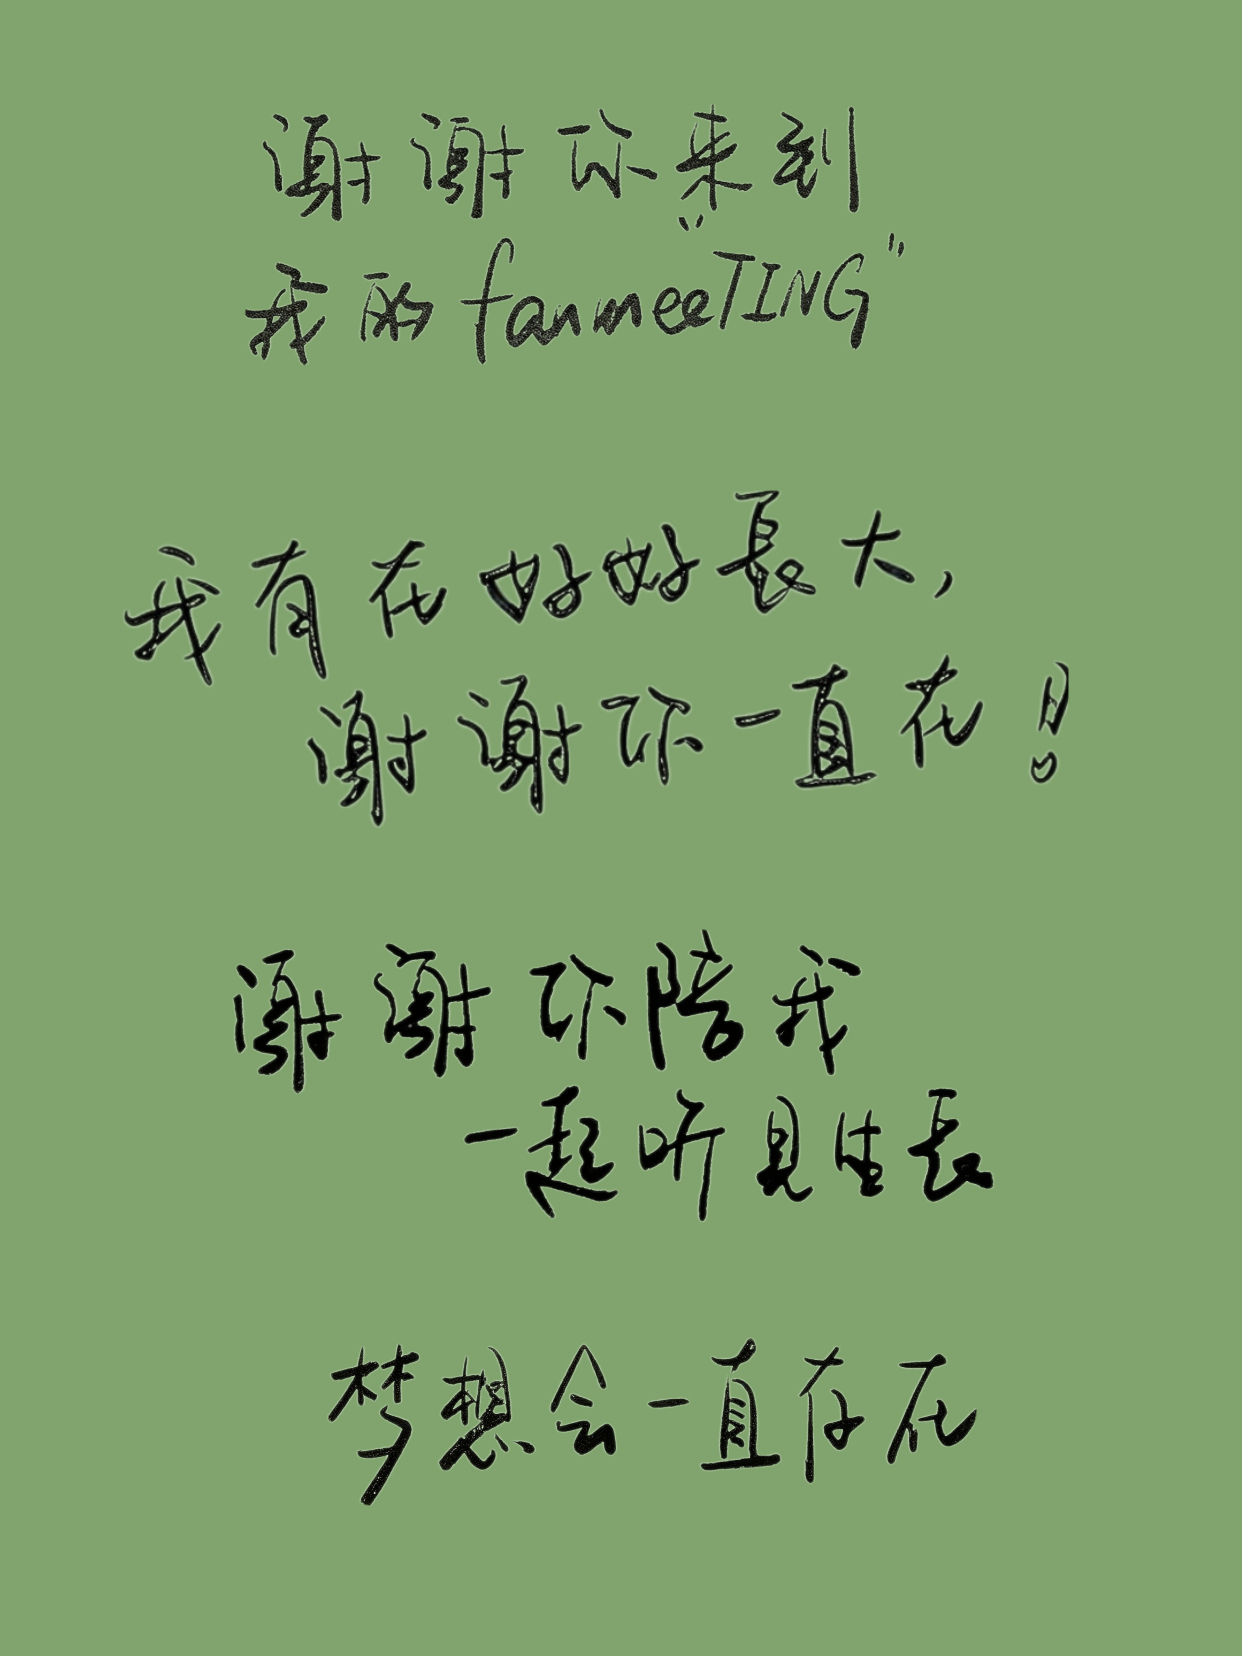 谢谢你来到
我的fanmee"TING"
我有在好好長大,
谢谢你一直在!
谢谢你陪我
一起听見生長
梦想会一直存在